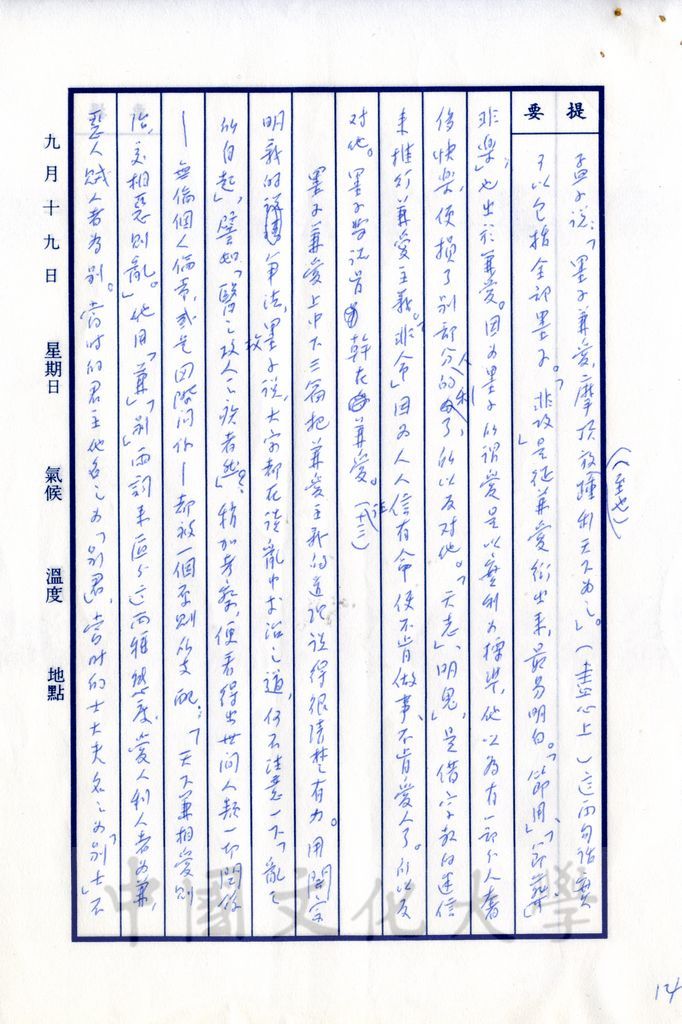 提要
孟子說:「墨子兼愛,摩頂放踵利天下為之。」(盡心上)這兩句話實
(至也)
可以包括全部墨子。「非攻」是從兼愛衍出來,最易明白。「節用」、「節葬」、
「非樂」也出於兼愛。因為墨子所謂愛是以實利為標準,他以為有一部分人奢
侈快樂,便損了別部分人的利了,所以反對他。「天志」、「明鬼」,是借宗教的迷信
來推行兼愛主義。「非命」因為人人信有命,便不肯做事、不肯愛人了。所以反
對他。墨子學說皆幹在兼愛。(註十三)
墨子兼愛上中下三篇把兼愛主義的道理說得很清楚有力。用開宗
明義的筆法,墨子說,大家都在談亂中求治之道,何不注意一下「亂之
所自起」,譬如「醫之攻人之疾者然」?稍加考察,便看得出世間人類一切關係
—無論個人倫常,或是四階間係—都被一個原則所支配:「天下兼相愛則
治,交相惡則亂。」他用「兼」「別」兩詞來區分這兩種態度。愛人利人者為兼,
惡人賊人者為別。當時的君主他名之為「別君」,當時的士大夫名之為「別士」不
九月十九日 星期日 氣候 溫度 地點
中國文化大學
14